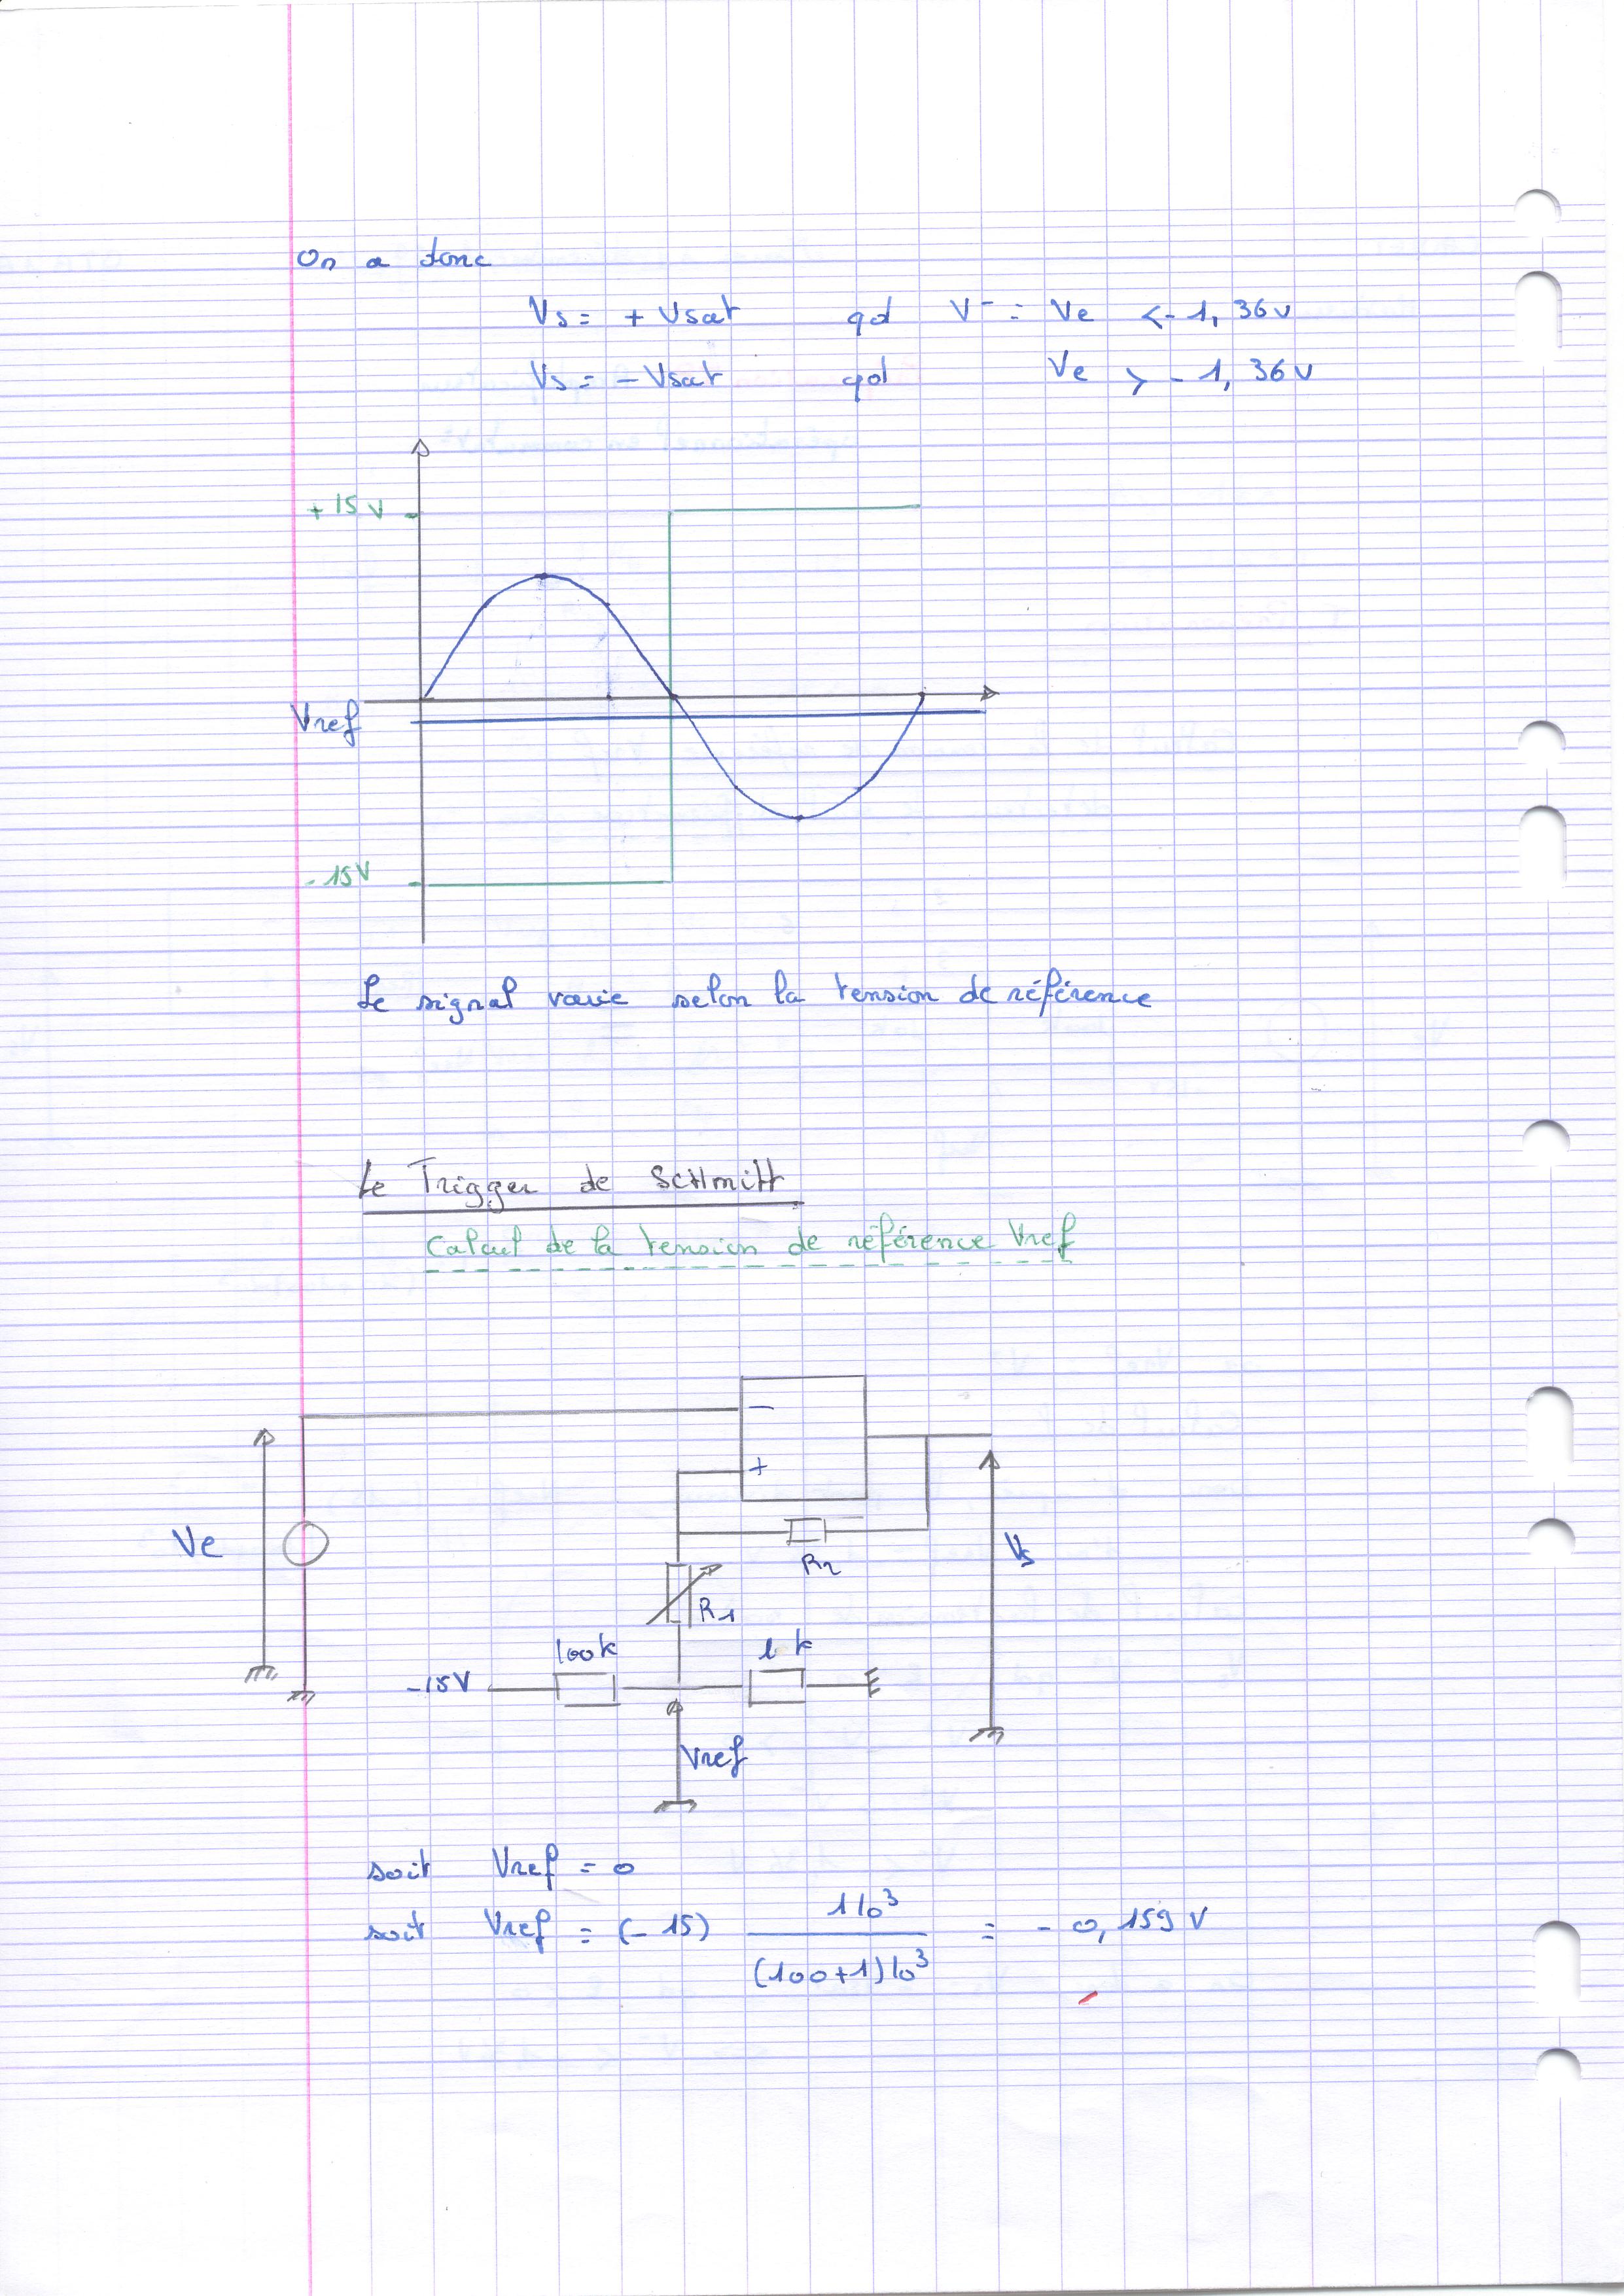 On a donc
Vs = + Vsat qd V⁻ = Ve < - 1,36 v
Vs = - Vsat qd Ve > - 1,36 v
+ 15 V
Vref
- 15V
Le signal varie selon la tension de référence
Le Trigger de SCHmitt
Calcul de la tension de référence Vref
-
+
Ve
R2
Vs
R1
100k
1 k
-15V
Vref
soit Vref = 0
soit Vref = (- 15) 1 10³ / (100+1) 10³ = - 0,159 V